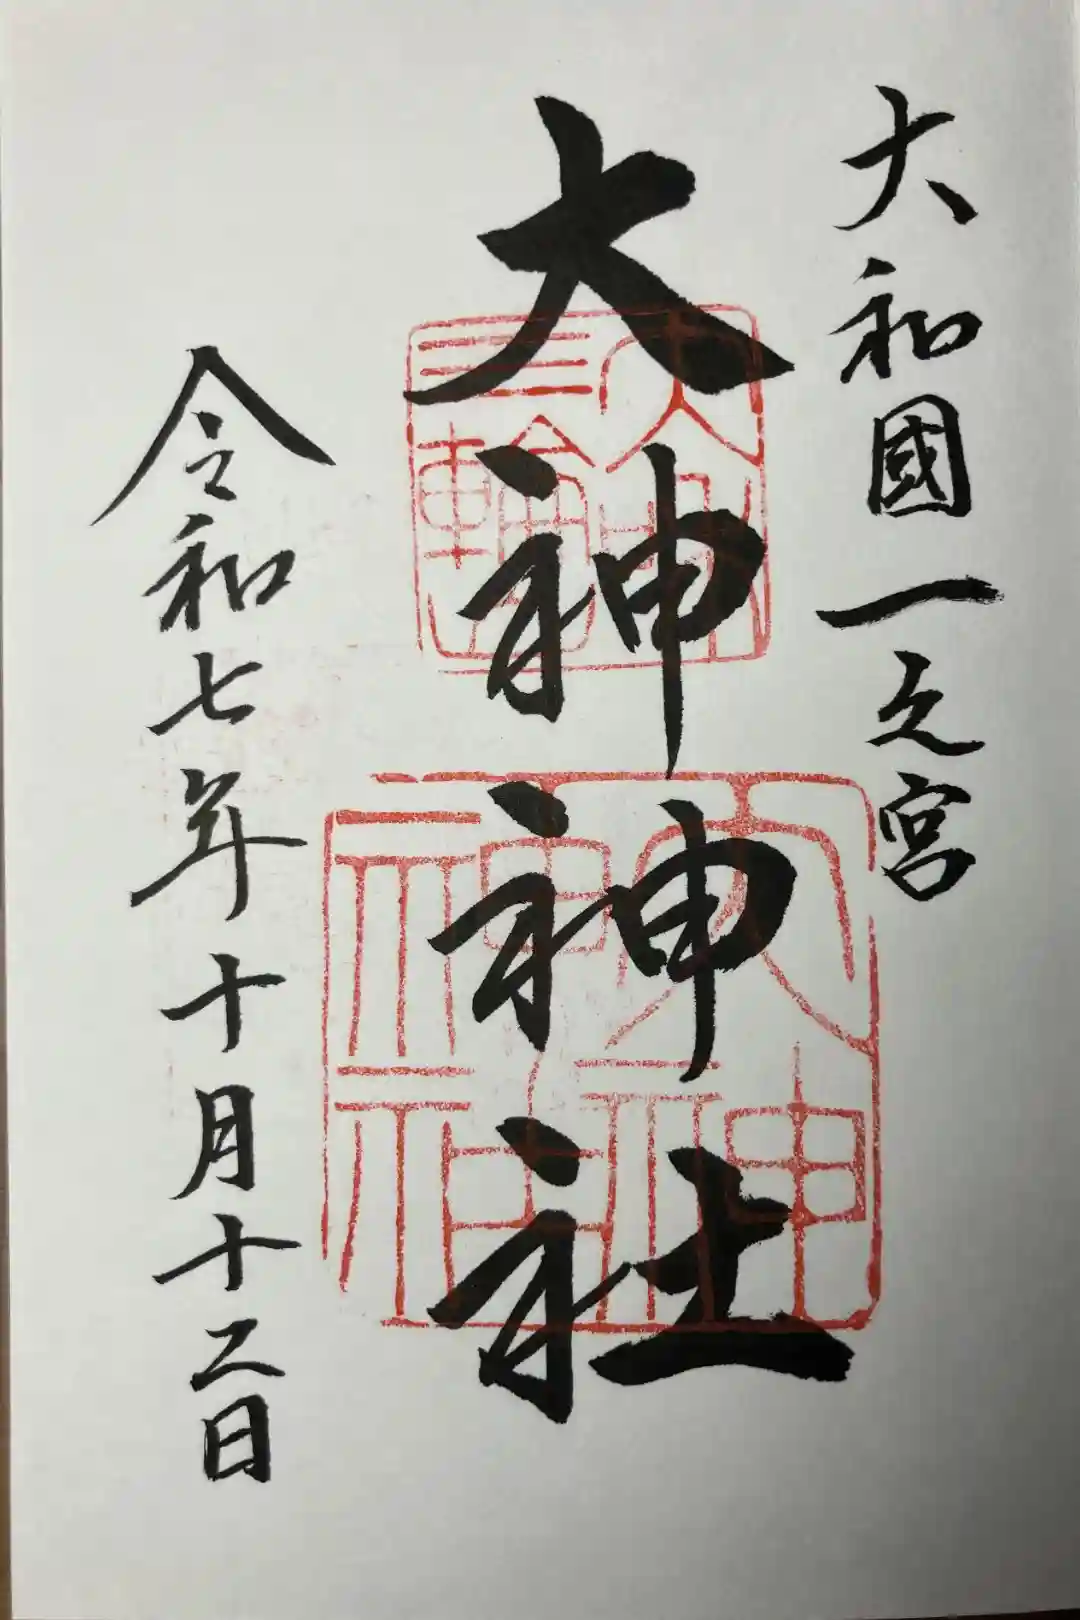 大和國一之宮
大神神社
令和七年十月十二日
大神神社